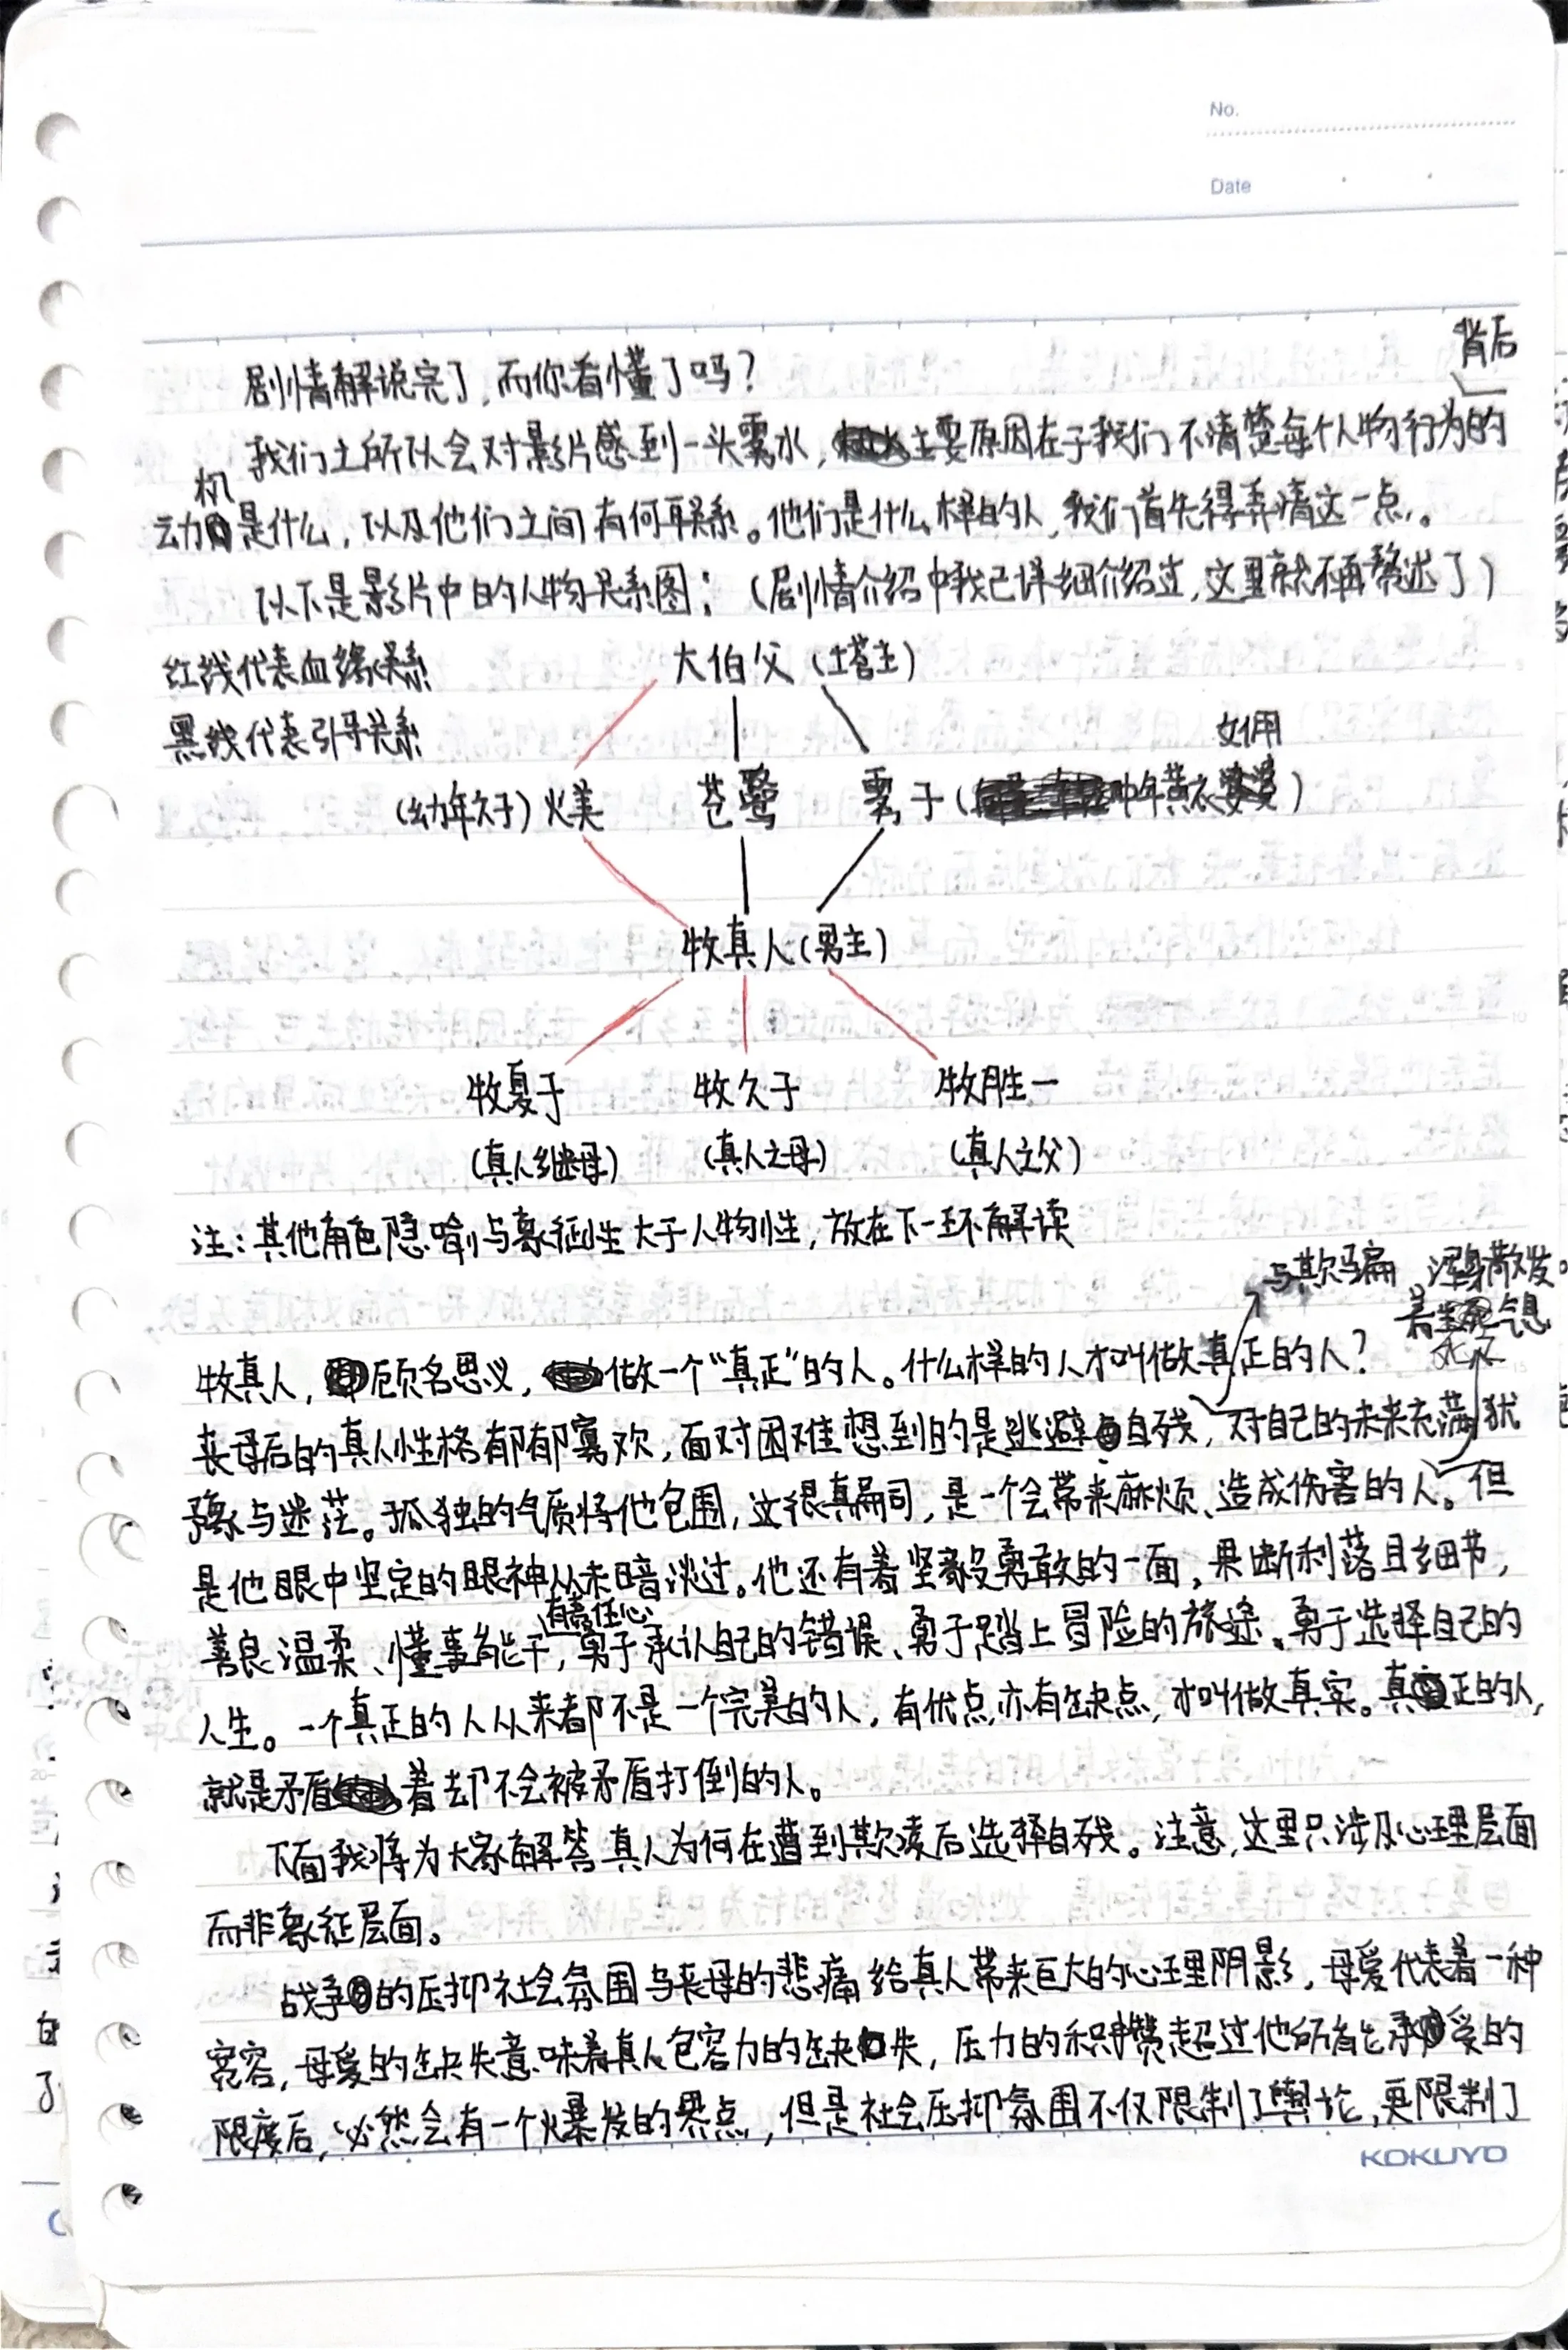 No.
Date
剧情解说完了,而你看懂了吗?
背后
我们之所以会对影片感到一头雾水,主要原因在于我们不清楚每个人物行为的
机
动是什么,以及他们之间有何联系。他们是什么样的人,我们首先得弄清这一点。
以下是影片中的人物关系图:(剧情介绍中我已详细介绍过,这里就不再赘述了)
红线代表血缘关系
大伯父(塔主)
黑线代表引导关系
女佣
(幼年久子)火美 苍鹭 雾子(中年黄衣婆婆)
牧真人(男主)
牧夏子 牧久子 牧胜一
(真人继母) (真人之母) (真人之父)
注:其他角色隐喻与象征性大于人物性,放在下一环解读
与欺骗 浑身散发
着死亡气息
牧真人,顾名思义,做一个“真正”的人。什么样的人才叫做真正的人?
丧母后的真人性格郁郁寡欢,面对困难想到的是逃避自残,对自己的未来充满犹
豫与迷茫。孤独的气质将他包围,这很真人,是一个会带来麻烦、造成伤害的人。但
是他眼中坚定的眼神从未暗淡过。他还有着坚毅勇敢的一面,果断利落且细节,
有责任心
善良温柔、懂事能干,勇于承认自己的错误、勇于踏上冒险的旅途、勇于选择自己的
人生。一个真正的人从来都不是一个完美的人,有优点亦有缺点,才叫做真实。真正的人,
就是矛盾着却不会被矛盾打倒的人。
下面我将为大家解答真人为何在遭到欺凌后选择自残。注意,这里只涉及心理层面
而非象征层面。
战争的压抑社会氛围与丧母的悲痛给真人带来巨大的心理阴影,母爱代表着一种
宽容,母爱的缺失意味着真人包容力的缺失,压力的积攒超过他所能承受的
限度后,必然会有一个火暴发的界点,但是社会压抑氛围不仅限制了舆论,更限制了
KOKUYO